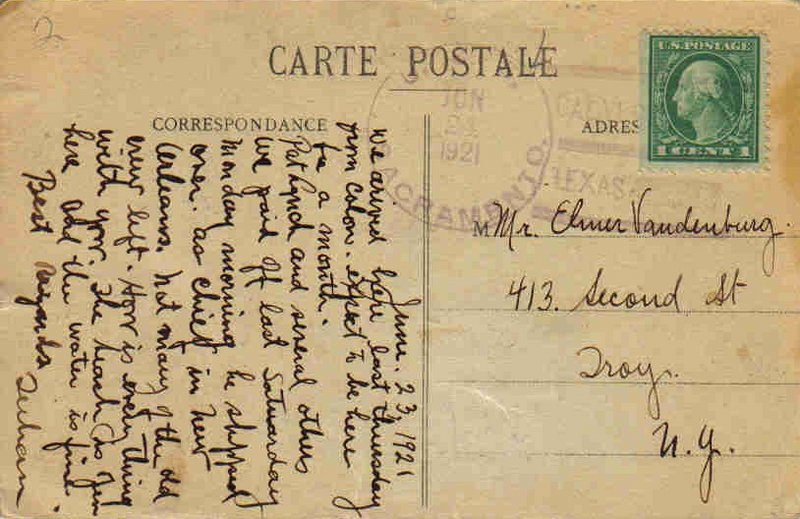 2
CARTE POSTALE
CORRESPONDANCE
ADRES
U.S. POSTAGE
1 CENT 1
JUN
1921
SACRAMENTO.
GALVES
TEXAS
June. 23, 1921
We arrived here last thursday
from Colon. expect to be here
for a month.
Pat Lynch and several others
we paid off last Saturday
Monday morning he shipped
over. as chief in New
Orleans. Not many of the old
crew left. How is everything
with you. The beach is fine
here and the water is fine.
Best regards
M Mr. Elmer Vandenburg.
413. Second St
Troy.
N.Y.